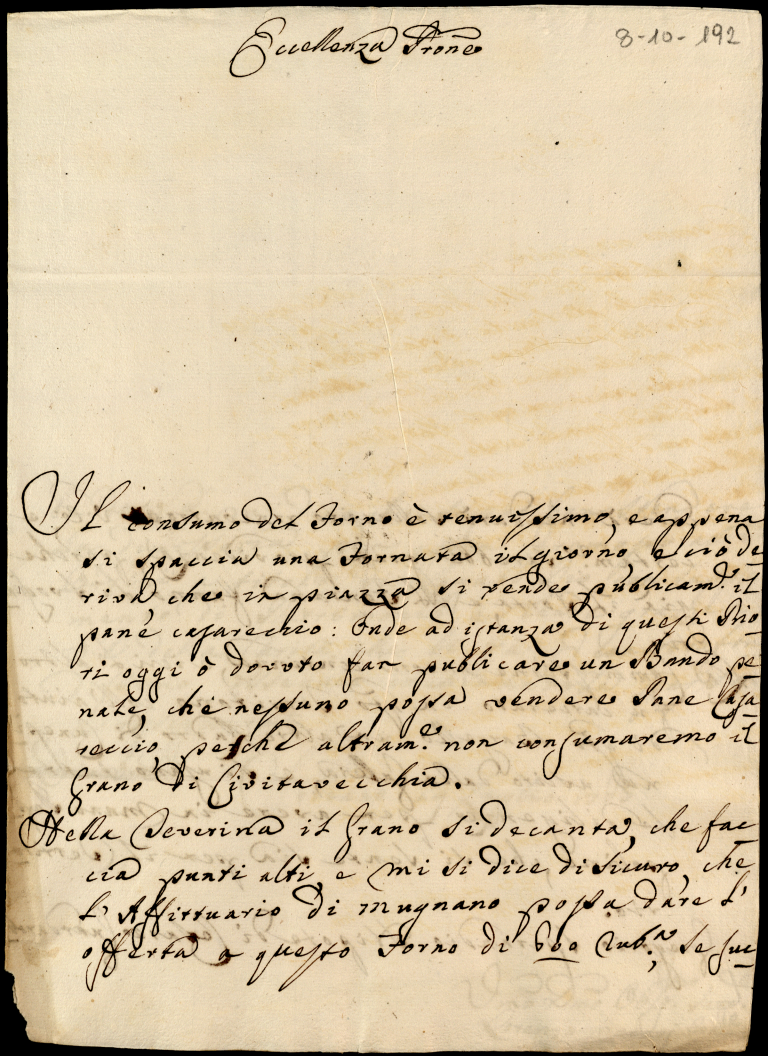 8-10-192
Eccellenza Prone
Il consumo del Forno è tenuissimo, e appena
si spaccia una Fornata il giorno, e ciò de
riva, che in piazza si vende publicam.e il
pane casareccio: Onde ad istanza di questi Prio-
ri oggi ò dovuto far publicare un Bando pe-
nale, che nessuno possa vendere Pane Casa-
reccio, perche altram.e non consumaremo il
Grano di Civitavecchia.
Nella Teverina il Grano si decanta, che fac-
cia punti alti, e mi si dice di sicuro, che
l'Affittuario di Mugnano possa dare l'
offerta a questo Forno di 600 Rub.a, se suc-